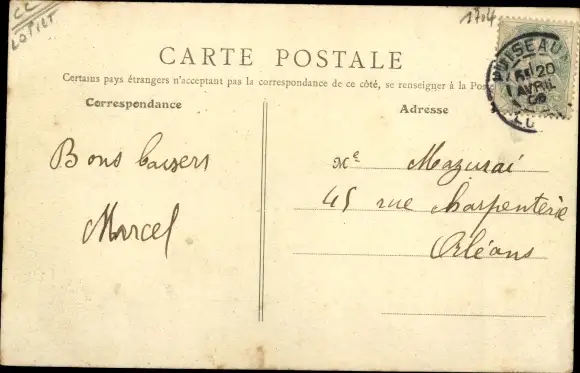 CC
LOPILT
1704
CARTE POSTALE
Certains pays étrangers n'acceptant pas la correspondance de ce côté, se renseigner à la Poste
Correspondance
Adresse
PUISEAUX
20
AVRIL
Bons baisers
Marcel
Me Mazurai
45 rue Charpenterie
Orléans